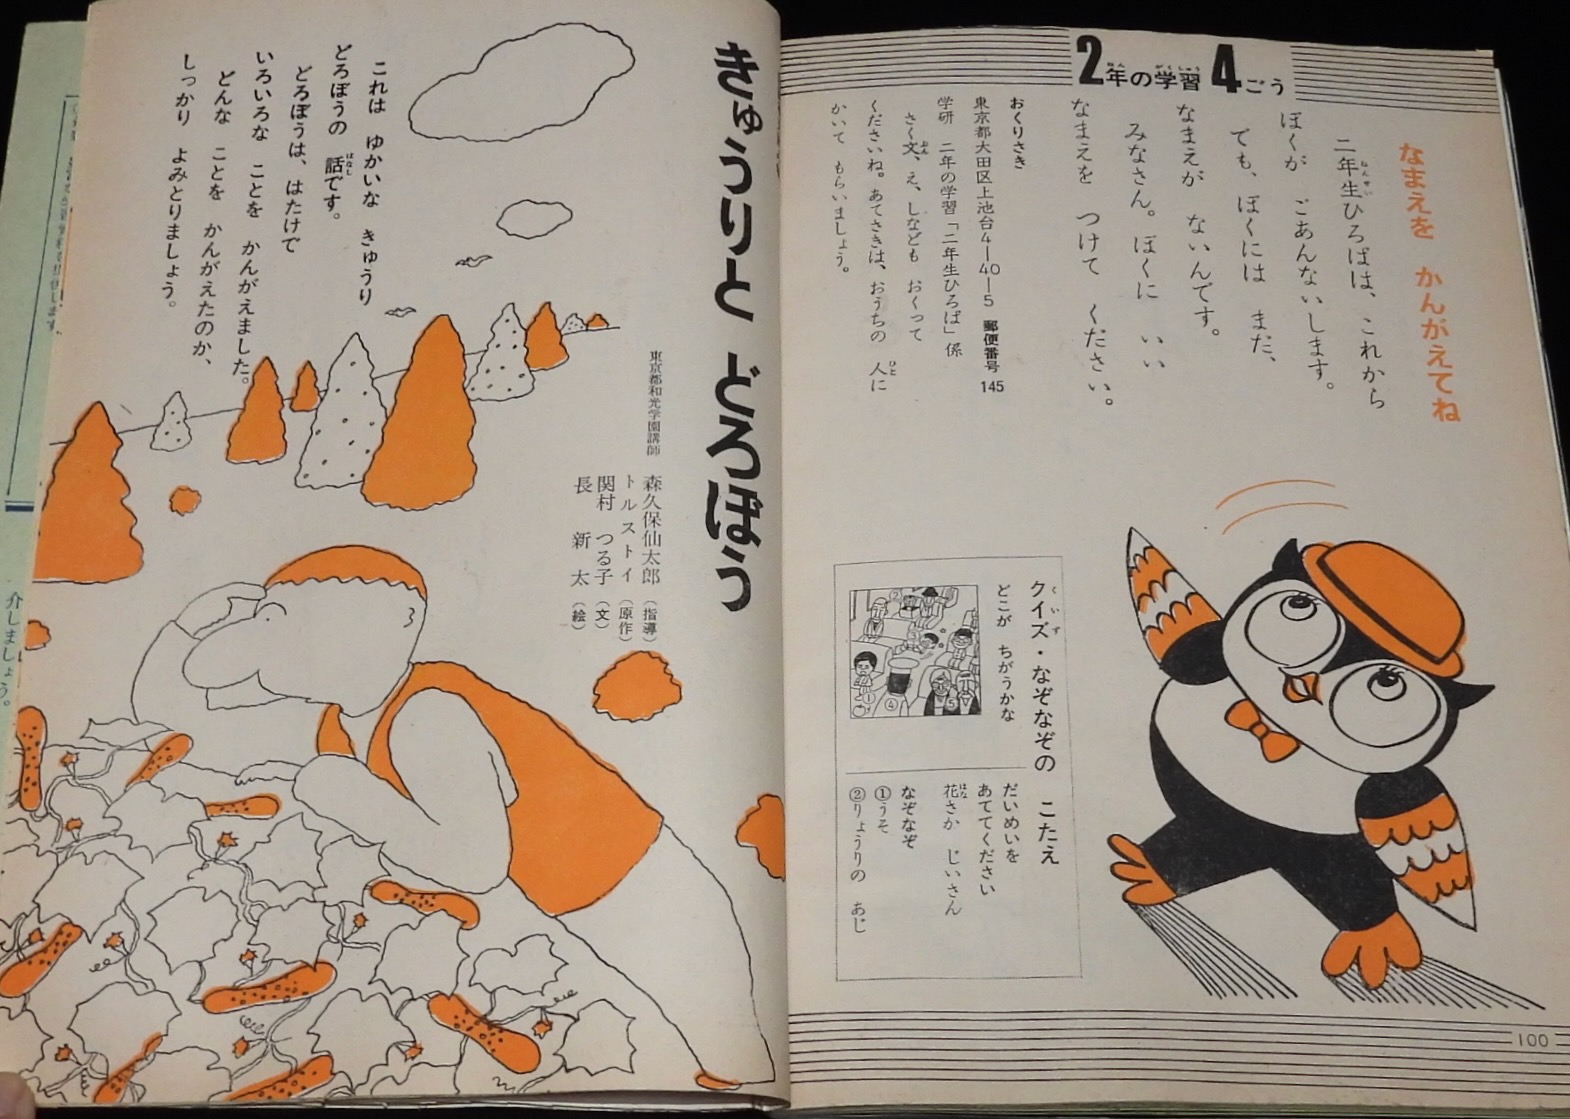 2年の学習 4ごう
なまえを かんがえてね
二年生ひろばは、これから
ぼくが ごあんないします。
でも、ぼくには まだ、
なまえが ないんです。
みなさん。ぼくに いい
なまえを つけて ください。
おくりさき
東京都大田区上池台4―40―5 郵便番号 145
学研 二年の学習「二年生ひろば」係
さく文、え、しなども おくって
くださいね。あてさきは、おうちの 人に
かいて もらいましょう。
クイズ・なぞなぞの こたえ
どこが ちがうかな
だいめいを
あててください
花さか じいさん
なぞなぞ
①うそ
②りょうりの あじ
100
きゅうりと どろぼう
東京都和光学園講師
森久保仙太郎(指導)
トルストイ(原作)
関村 つる子(文)
長 新太(絵)
これは ゆかいな きゅうり
どろぼうの 話です。
どろぼうは、はたけで
いろいろな ことを かんがえました。
どんな ことを かんがえたのか、
しっかり よみとりましょう。
介しましょう。